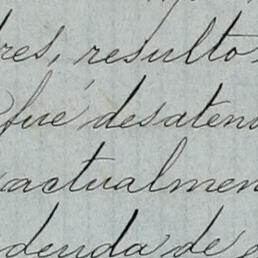 res, resulto
fué desaten
actualmen
deuda de